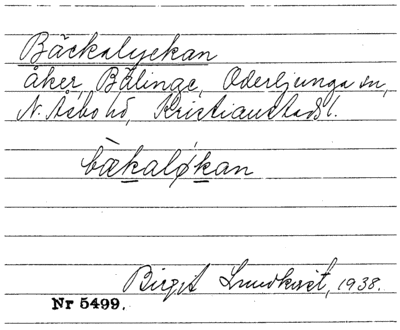 Bäckalyckan
åker, Bälinge, Oderljunga sn,
N. Åsbo hd, Kristianstads l.
bækaløkan
Birgit Lundkvist, 1938.
Nr 5499.